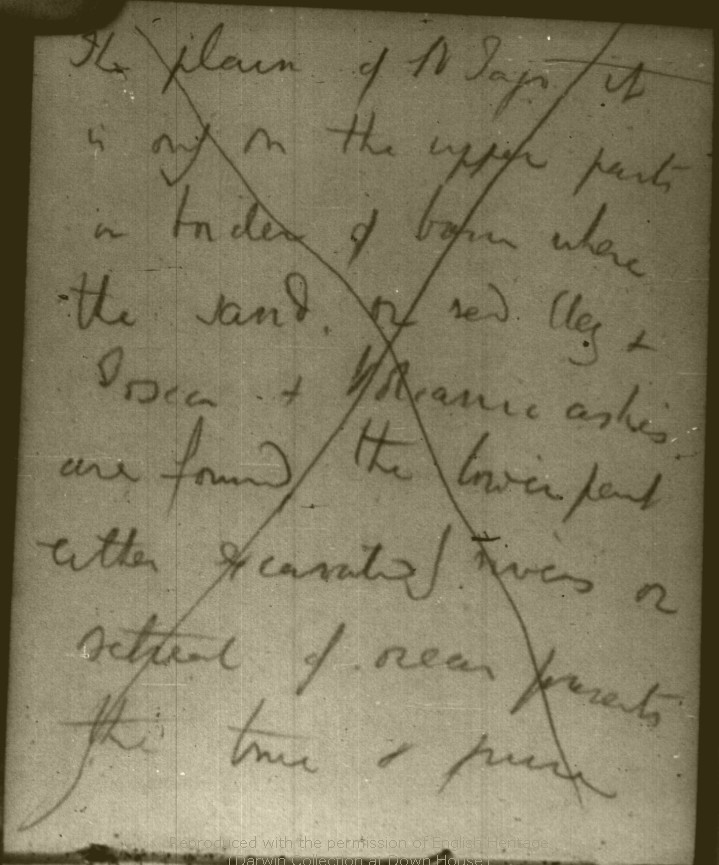 The plain of St Jago it
is only on the upper parts
or border of basin where
the sand. or red Clay +
& Volcanic ashes.
are found the lower part
either excavated rivers or
retreat of ocean presents
the true & pure
Reproduced with the permission of English Heritage
(Darwin Collection at Down House)